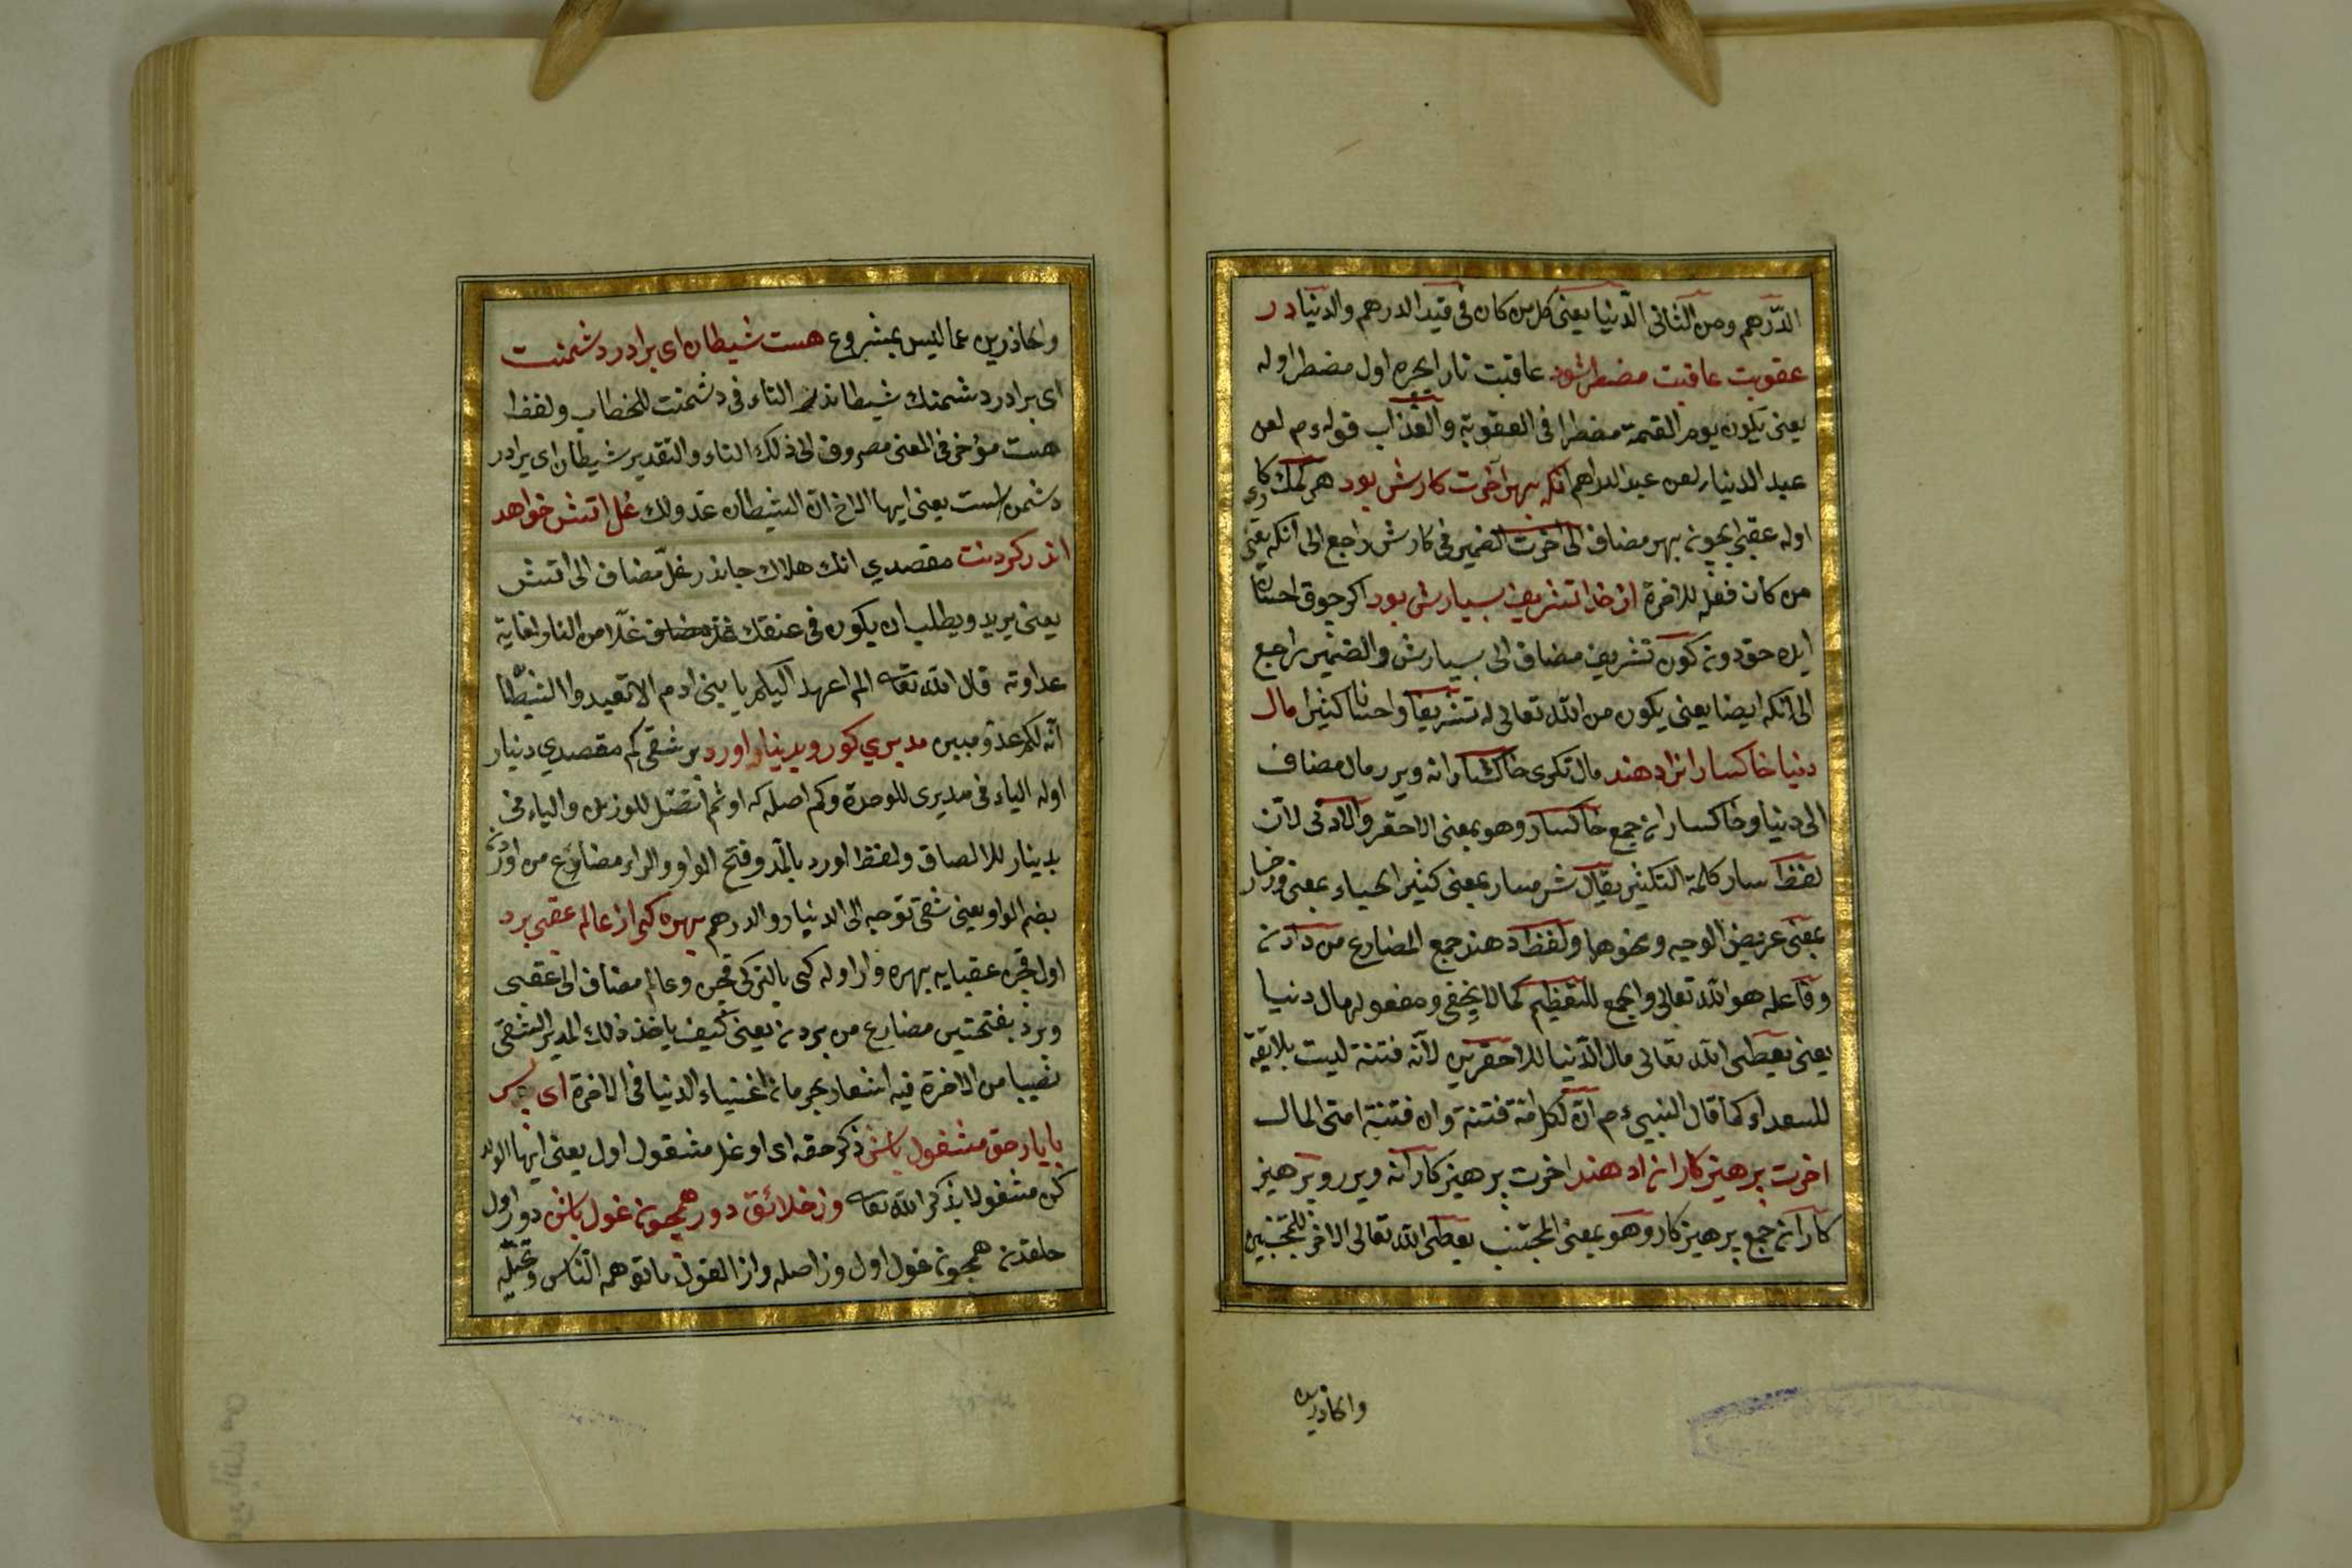 الدّرهم ومن الثانى الدّنيا يعنى كل من كان فى قيد الدرهم والدنيا در
عقوبت عاقبت مضطر شود عاقبت نار ايچره اول مضطر اوله
يعنى يكون يوم القيمة مضطرا فى العقوبة والعذاب قوله ءم لعن
عبد الدنيار لعن عبد الدراهم آنكه بهر آخرت كارش بود هر كمك كارى
اوله عقبى ايچون بهر مضاف الى آخرت الضمير فى كارش راجع الى آنكه يعنى
من كان فعله للاخرة از خدا تشريف بسيارش بود اكر چوق احسان
ايده حق دون كون تشريف مضاف الى بسيارش والضمير راجع
الى آنكه ايضا يعنى يكون من الله تعالى له تشريفا واحسانا كثيرا مال
دنيا خاكسارانرا دهند مال تكرى خاكسارانه ويرر مال مضاف
الى دنيا وخاكساران جمع خاكسار وهو بمعنى الاحقر والادنى لان
لفظ سار كلمة التكثير يقال شرمسار بمعنى كثير الحياء بمعنى ورخسار
بمعنى عريض الوجيه ونحوها ولفظ دهند جمع المضارع من دادن
وفاعله هو الله تعالى والجمع للتعظيم كما لا يخفى ومفعوله مال دنيا
يعنى يعطى الله تعالى مال الدّنيا للاحقرين لانّه فتنة ليست بلايقة
للسعداء كما قال النبىء م انّ لكل امّة فتنة وان فتنة امتى المال
اخرت پرهيزكارانرا دهند اخرت پرهيزكارانه ويرر وپرهيز
كاران جمع پرهيزكار وهو بمعنى المجتنب يعطى الله تعالى الاخرة للمجتنبين
والحاذرين
والحاذرين عما ليس بمشروع هست شيطان اى برادر دشمنت
اى برادر دشمنك شيطاندر التاء فى دشمنت للخطاب ولفظ
هست مؤخر فى المعنى مصروف الى ذلك التاء والتقدير شيطان اى برادر
دشمن است يعنى ايها الاخ انّ الشيطان عدو لك غل اتش خواهد
اندر كردنت مقصدي انك هلاك جاندر غلّ مضاف الى اتش
يعنى يريد ويطلب ان يكون فى عنقك غلّا من النار لغاية
عداوته قال الله تعا الم اعهد اليكم يا بنى ادم الا تعبدوا الشيطان
انّه لكم عدوّ مبين مدبري كو رو بدينار اورد بر شقى كم مقصدي دينار
اوله الياء فى مدبرى للوحدة وكم اصله كه او ثم اتصل للوزن والباء فى
بدينار للالصاق ولفظ اورد بالمد وفتح الواو والراء مضارع من اوردن
بضم الواو يعنى شقى توجه الى الدنيار والدرهم بهره كى از عالم عقبى برد
اول قچن عقبايه بهره وار اوله كى بالتركى قچن وعالم مضاف الى عقبى
وبرد بفتحتين مضارع من بردن يعنى كيف ياخذ ذلك المدبر الشقى
نصيبا من الاخرة فيه اشعار بحرمان اغنياء الدنيا فى الاخرة اى پسر
با ياد حق مشغول باش ذكر حقه اى اوغل مشغول اول يعنى ايها الولد
كن مشغولا بذكر الله تعا وز خلائق دور همچون غول باش دور اول
خلقدن همچون غول اول وز اصله واز الغول ما توهمه الناس وتخيله